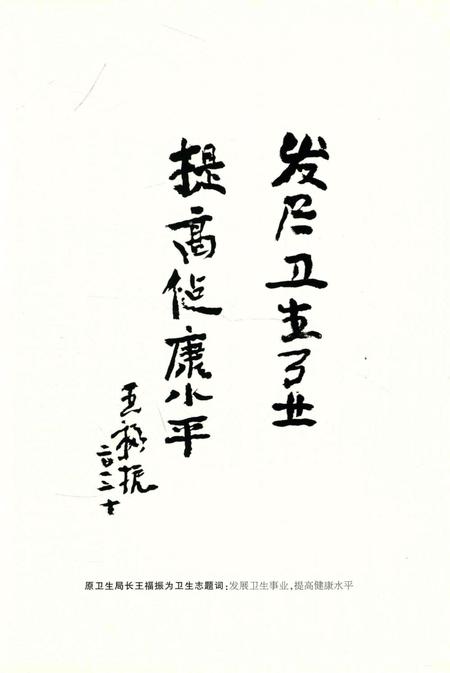 发展卫生事业
提高健康水平
王福振
二〇一二十
原卫生局长王福振为卫生志题词：发展卫生事业，提高健康水平